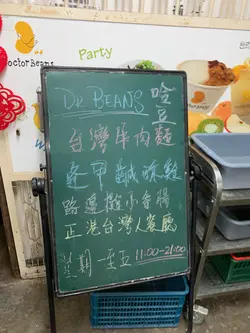 Party
Doctor Beans
DR BEANS 哈豆
台灣牛肉麵
逢甲鹹酥雞
路邊攤小香腸
正港台灣人餐廳
星期一至五 11:00-21:00